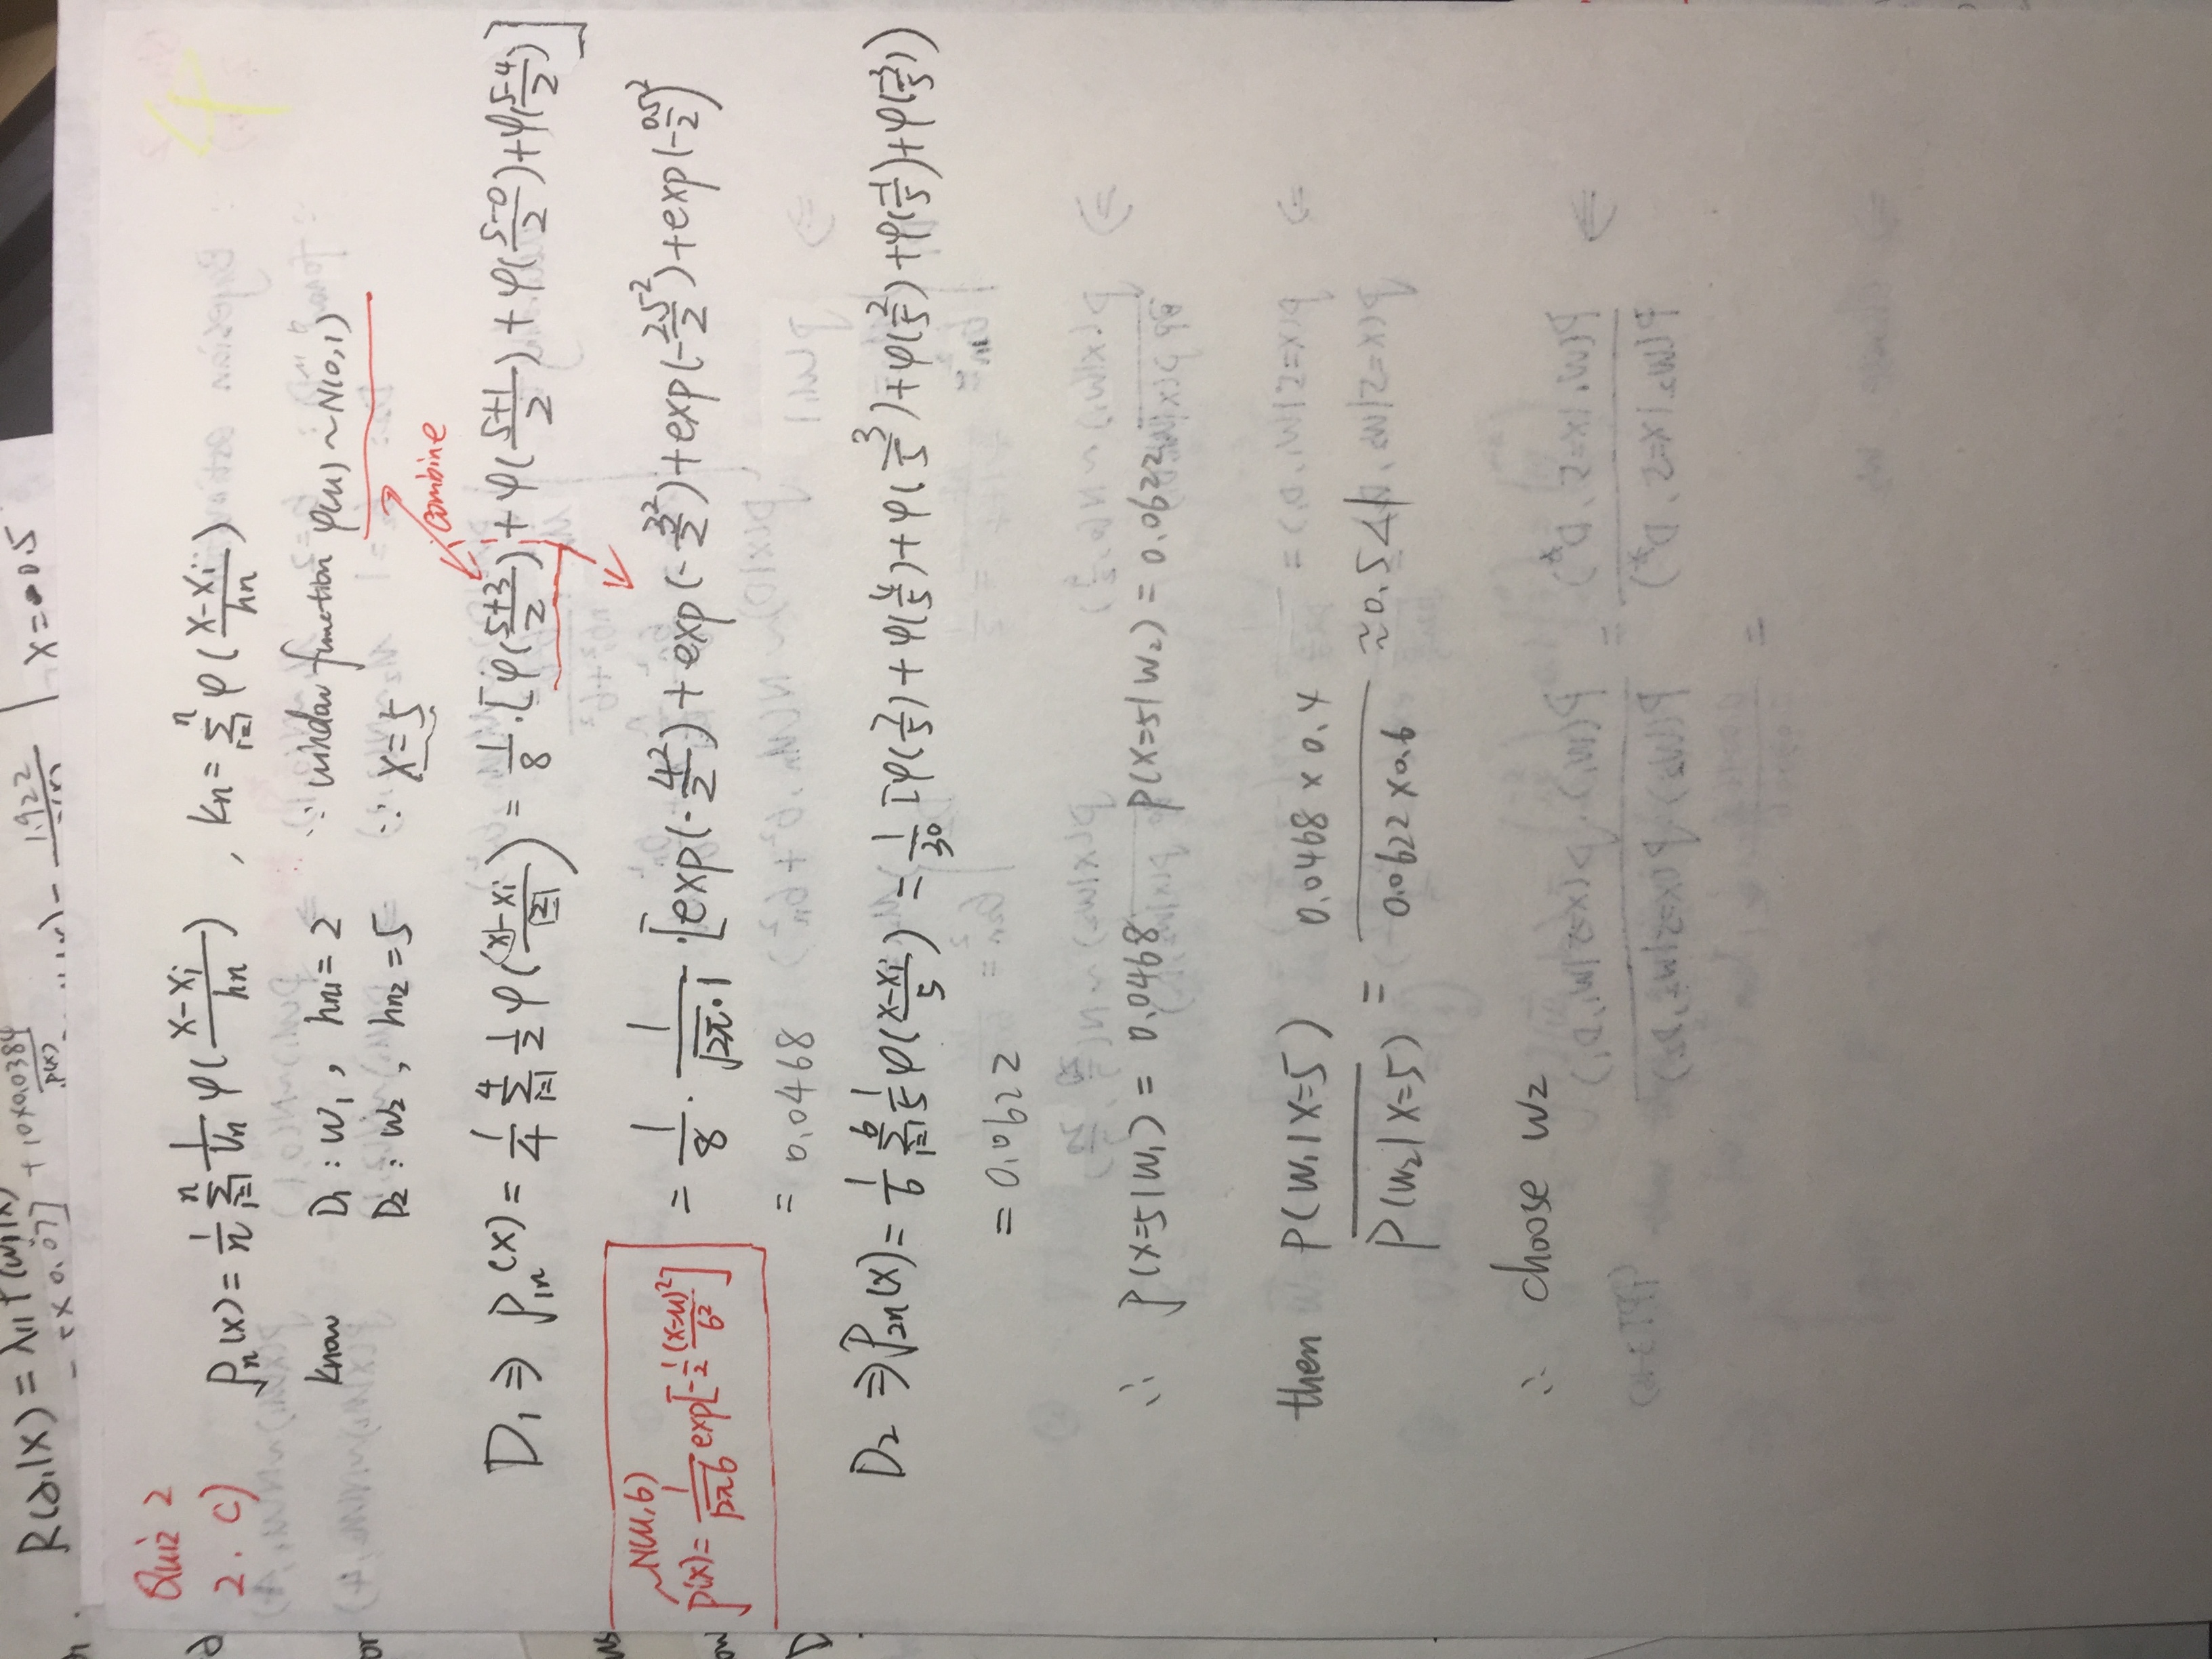 R(α₁|X) = λ₁₁P(w₁|X)
+ 10×0.0384 / P(X)
1.922
X = -0.5
Quiz 2
4
2. c) Pn(x) = 1/n Σ_{i=1}^{n} 1/Vn φ((x-xi)/hn) , Kn = Σ_{i=1}^{n} φ((x-xi)/hn)
Know D₁ : w₁ , hn₁ = 2 ∵ window function φ(u) ~ N(0,1)
D₂ : w₂ , hn₂ = 5 ∵ X = 5
combine
D₁ ⇒ P₁n(x) = 1/4 Σ_{i=1}^{4} 1/2 φ((x-xi)/2) = 1/8 · [φ((5+3)/2) + φ((5+1)/2) + φ((5-0)/2) + φ((5-4)/2)]
~N(u,6)
p(x) = 1/(√2π 6) exp[-1/2 (x-u)²/6²]
= 1/8 · 1/(√2π · 1) · [exp(-4²/2) + exp(-3²/2) + exp(-2.5²/2) + exp(-0.5/2)²
= 0.0468
D₂ ⇒ P₂n(x) = 1/6 Σ_{i=1}^{6} 1/5 φ((x-xi)/5) = 1/30 [φ(7/5) + φ(4/5) + φ(3/5) + φ(2/5) + φ(-1/5) + φ(-3/5))
= 0.0622
∴ P(X=5|W₁) = 0.0468 P(X=5|W₂) = 0.0622
then P(W₁|X=5) / P(W₂|X=5) = 0.0468 × 0.4 / 0.0622 × 0.6 ≈ 0.5
∴ choose w₂